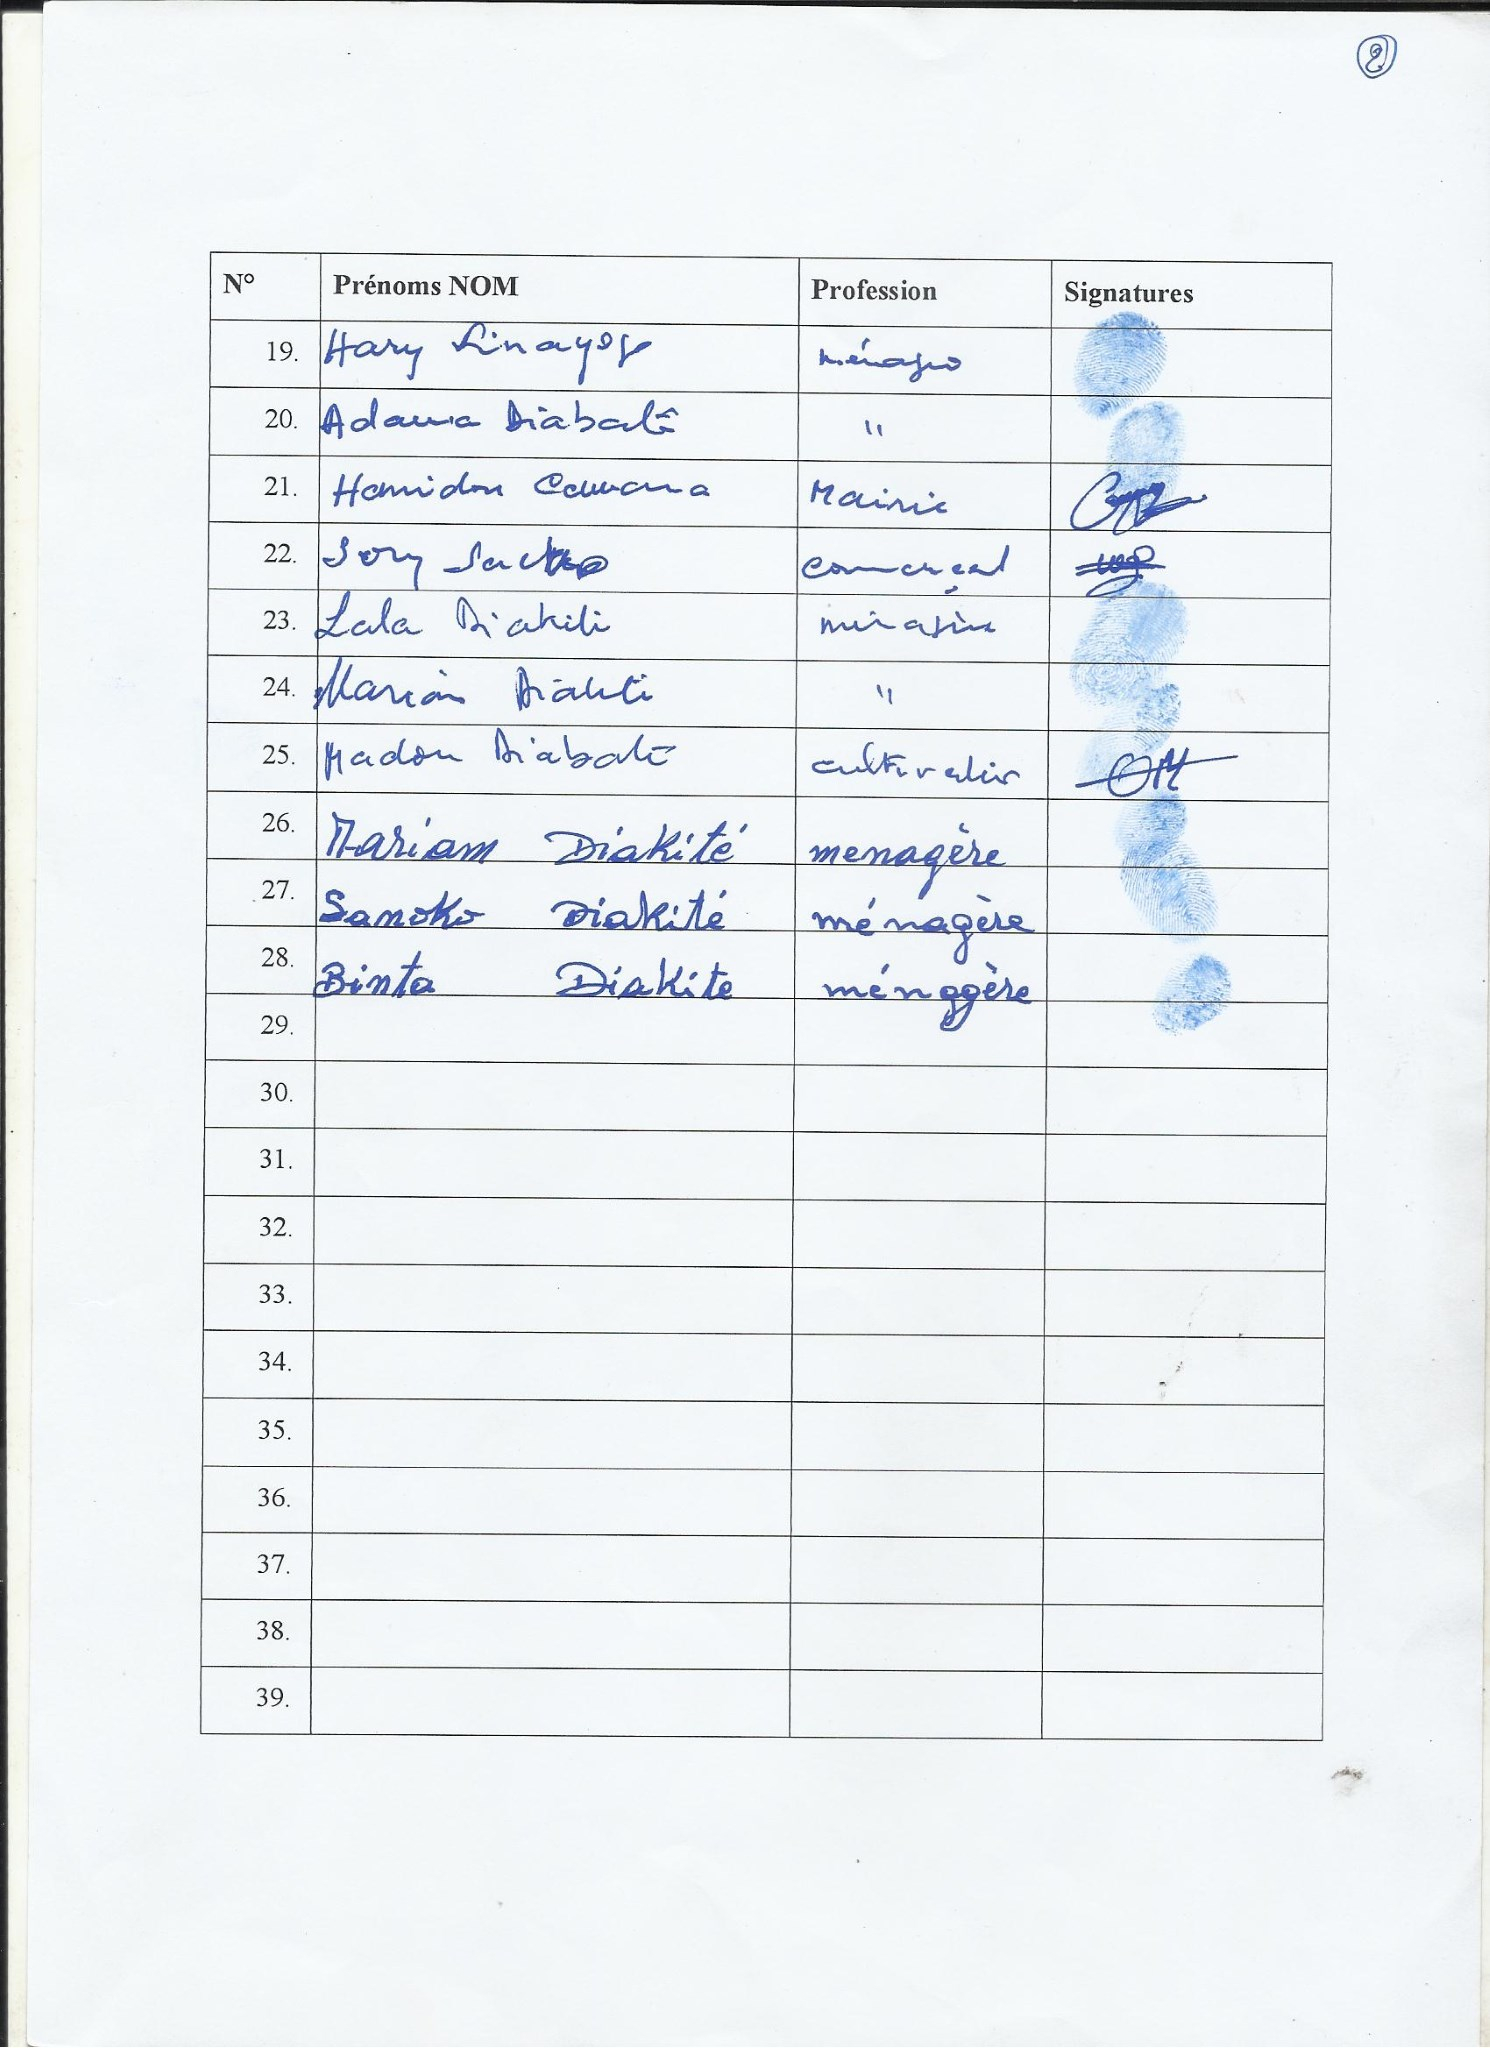 2
N° Prénoms NOM Profession Signatures
19. Hary Sinayogo
20. Adama Diabaté "
21. Hamidou Camara Mairie
22. Sory Sacko
23. Lala Diakiti
24. Mariam Diakiti "
25. Madou Diabaté cultivateur
26. Mariam Diakité menagère
27. Sanoko Diakité ménagère
28. Binta Diakite ménagère
29.
30.
31.
32.
33.
34.
35.
36.
37.
38.
39.